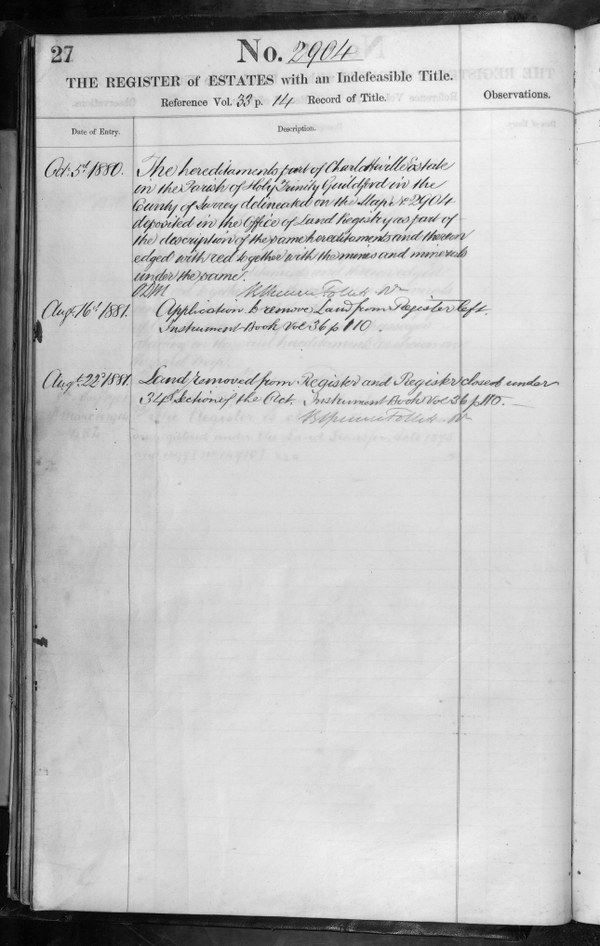 27
No. 2904
THE REGISTER of ESTATES with an Indefeasible Title.
Reference Vol. 33 p. 14 Record of Title.
Observations.
Date of Entry.
Description.
Oct. 5th 1880. The hereditaments part of Charlottville Estate
in the Parish of Holy Trinity Guildford in the
County of Surrey delineated on the Map No 2904
deposited in the Office of Land Registry as part of
the description of the same hereditaments and thereon
edged with red together with the mines and minerals
under the same.
Follett
Augt. 16th 1881. Application to remove Land from Register left.
Instrument Book Vol 36 p 110.
Augt. 22d 1881. Land removed from Register and Register closed under
34 Section of the Act. Instrument Book Vol 36 p 110.
Follett